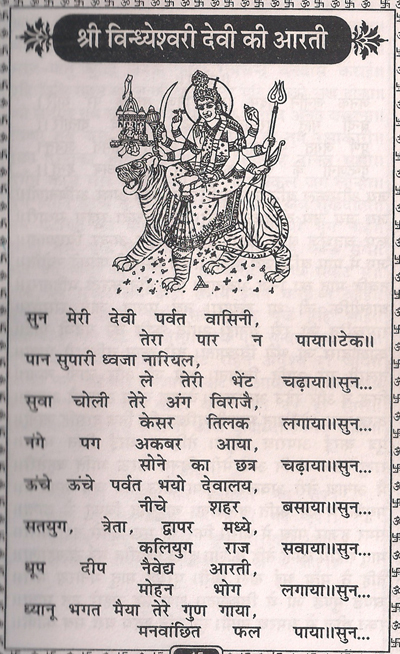 श्री विन्ध्येश्वरी देवी की आरती
सुन मेरी देवी पर्वत वासिनी,
तेरा पार न पाया॥टेक॥
पान सुपारी ध्वजा नारियल,
ले तेरी भेंट चढ़ाया॥सुन...
सुवा चोली तेरे अंग विराजै,
केसर तिलक लगाया॥सुन...
नंगे पग अकबर आया,
सोने का छत्र चढ़ाया॥सुन...
ऊंचे ऊंचे पर्वत भयो देवालय,
नीचे शहर बसाया॥सुन...
सतयुग, त्रेता, द्वापर मध्ये,
कलियुग राज सवाया॥सुन...
धूप दीप नैवेद्य आरती,
मोहन भोग लगाया॥सुन...
ध्यानू भगत मैया तेरे गुण गाया,
मनवांछित फल पाया॥सुन...